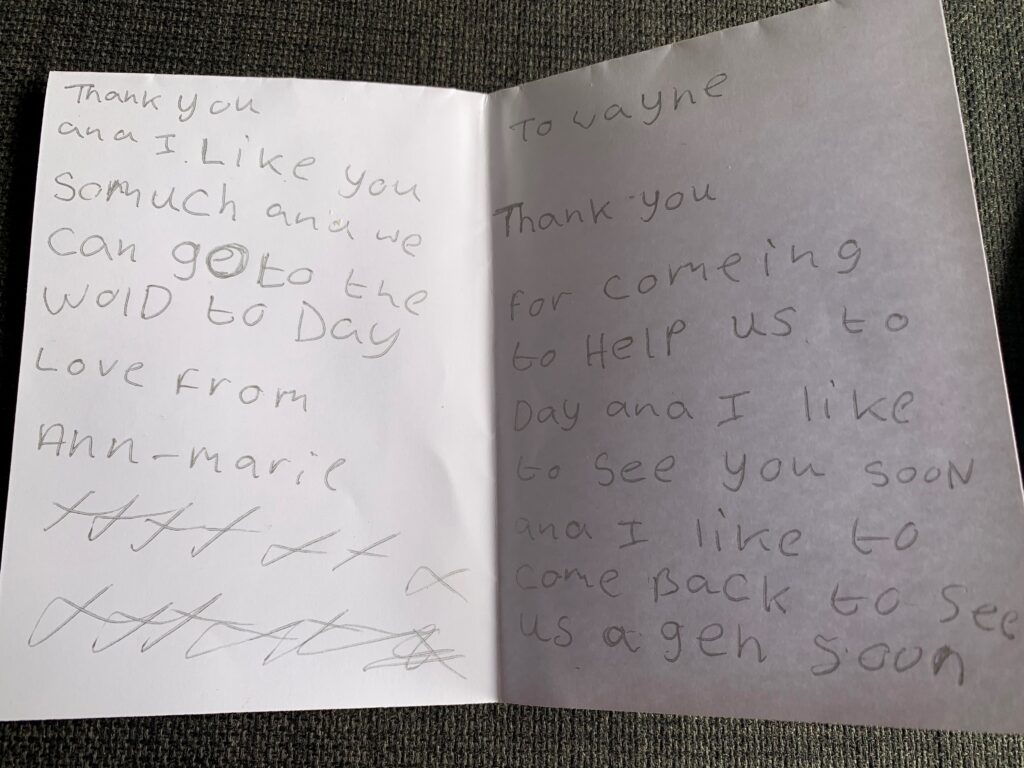 Thank you
ana I Like you
somuch ana we
can go to the
WOlD to Day
Love From
Ann-marie
To wayne
Thank you
For comeing
to HelP us to
Day ana I like
to see you sooN
ana I like to
come Back to see
us a gen soon